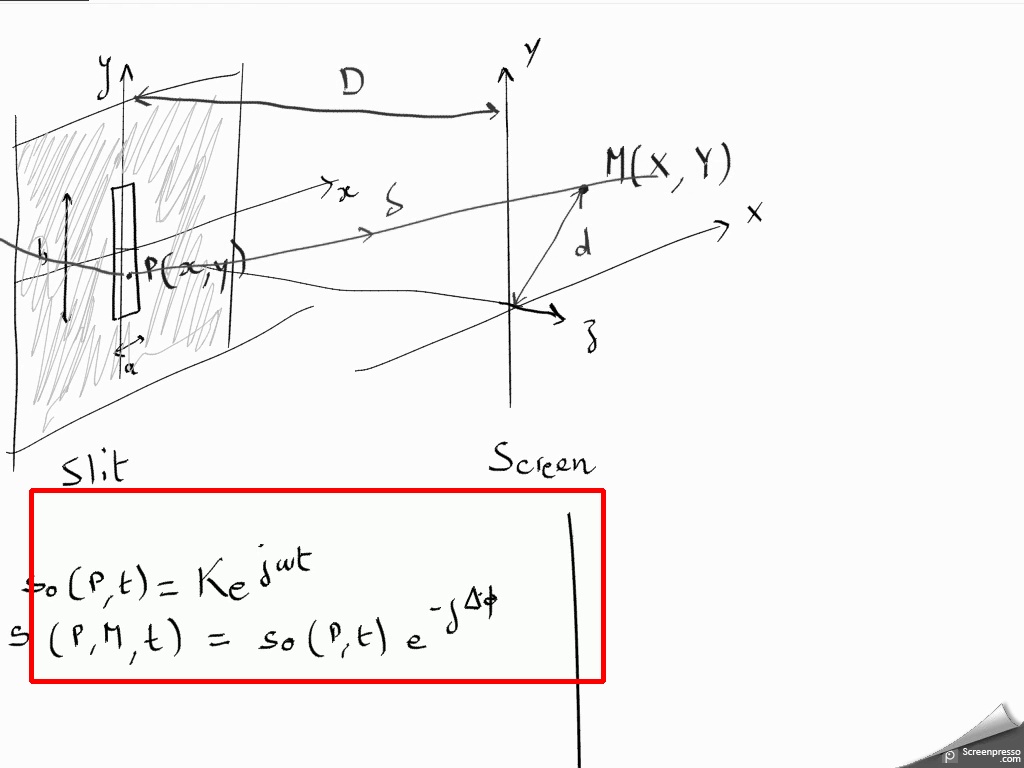 y
Y
D
M(X, Y)
x
X
δ
b
P(x, y)
d
z
a
Slit
Screen
so(P, t) = K e^jωt
s(P, M, t) = so(P, t) e^-jΔϕ
Screenpresso
.com